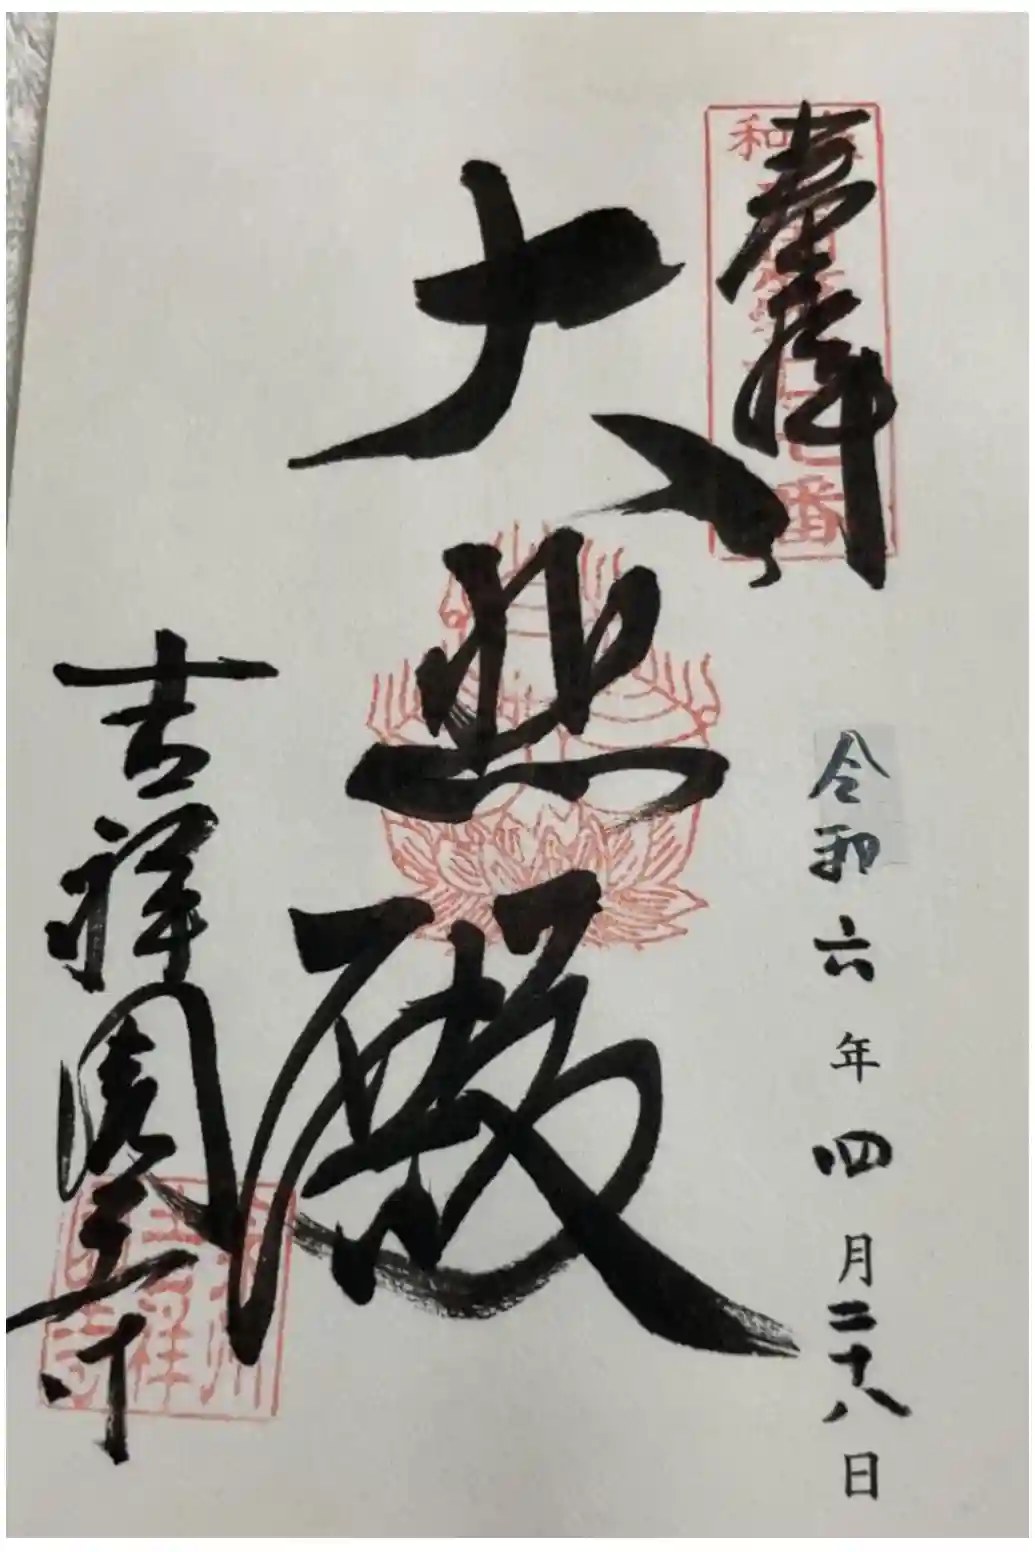 奉拝
令和六年四月二十八日
大悲殿
吉祥 寺
和 番
祥 寺